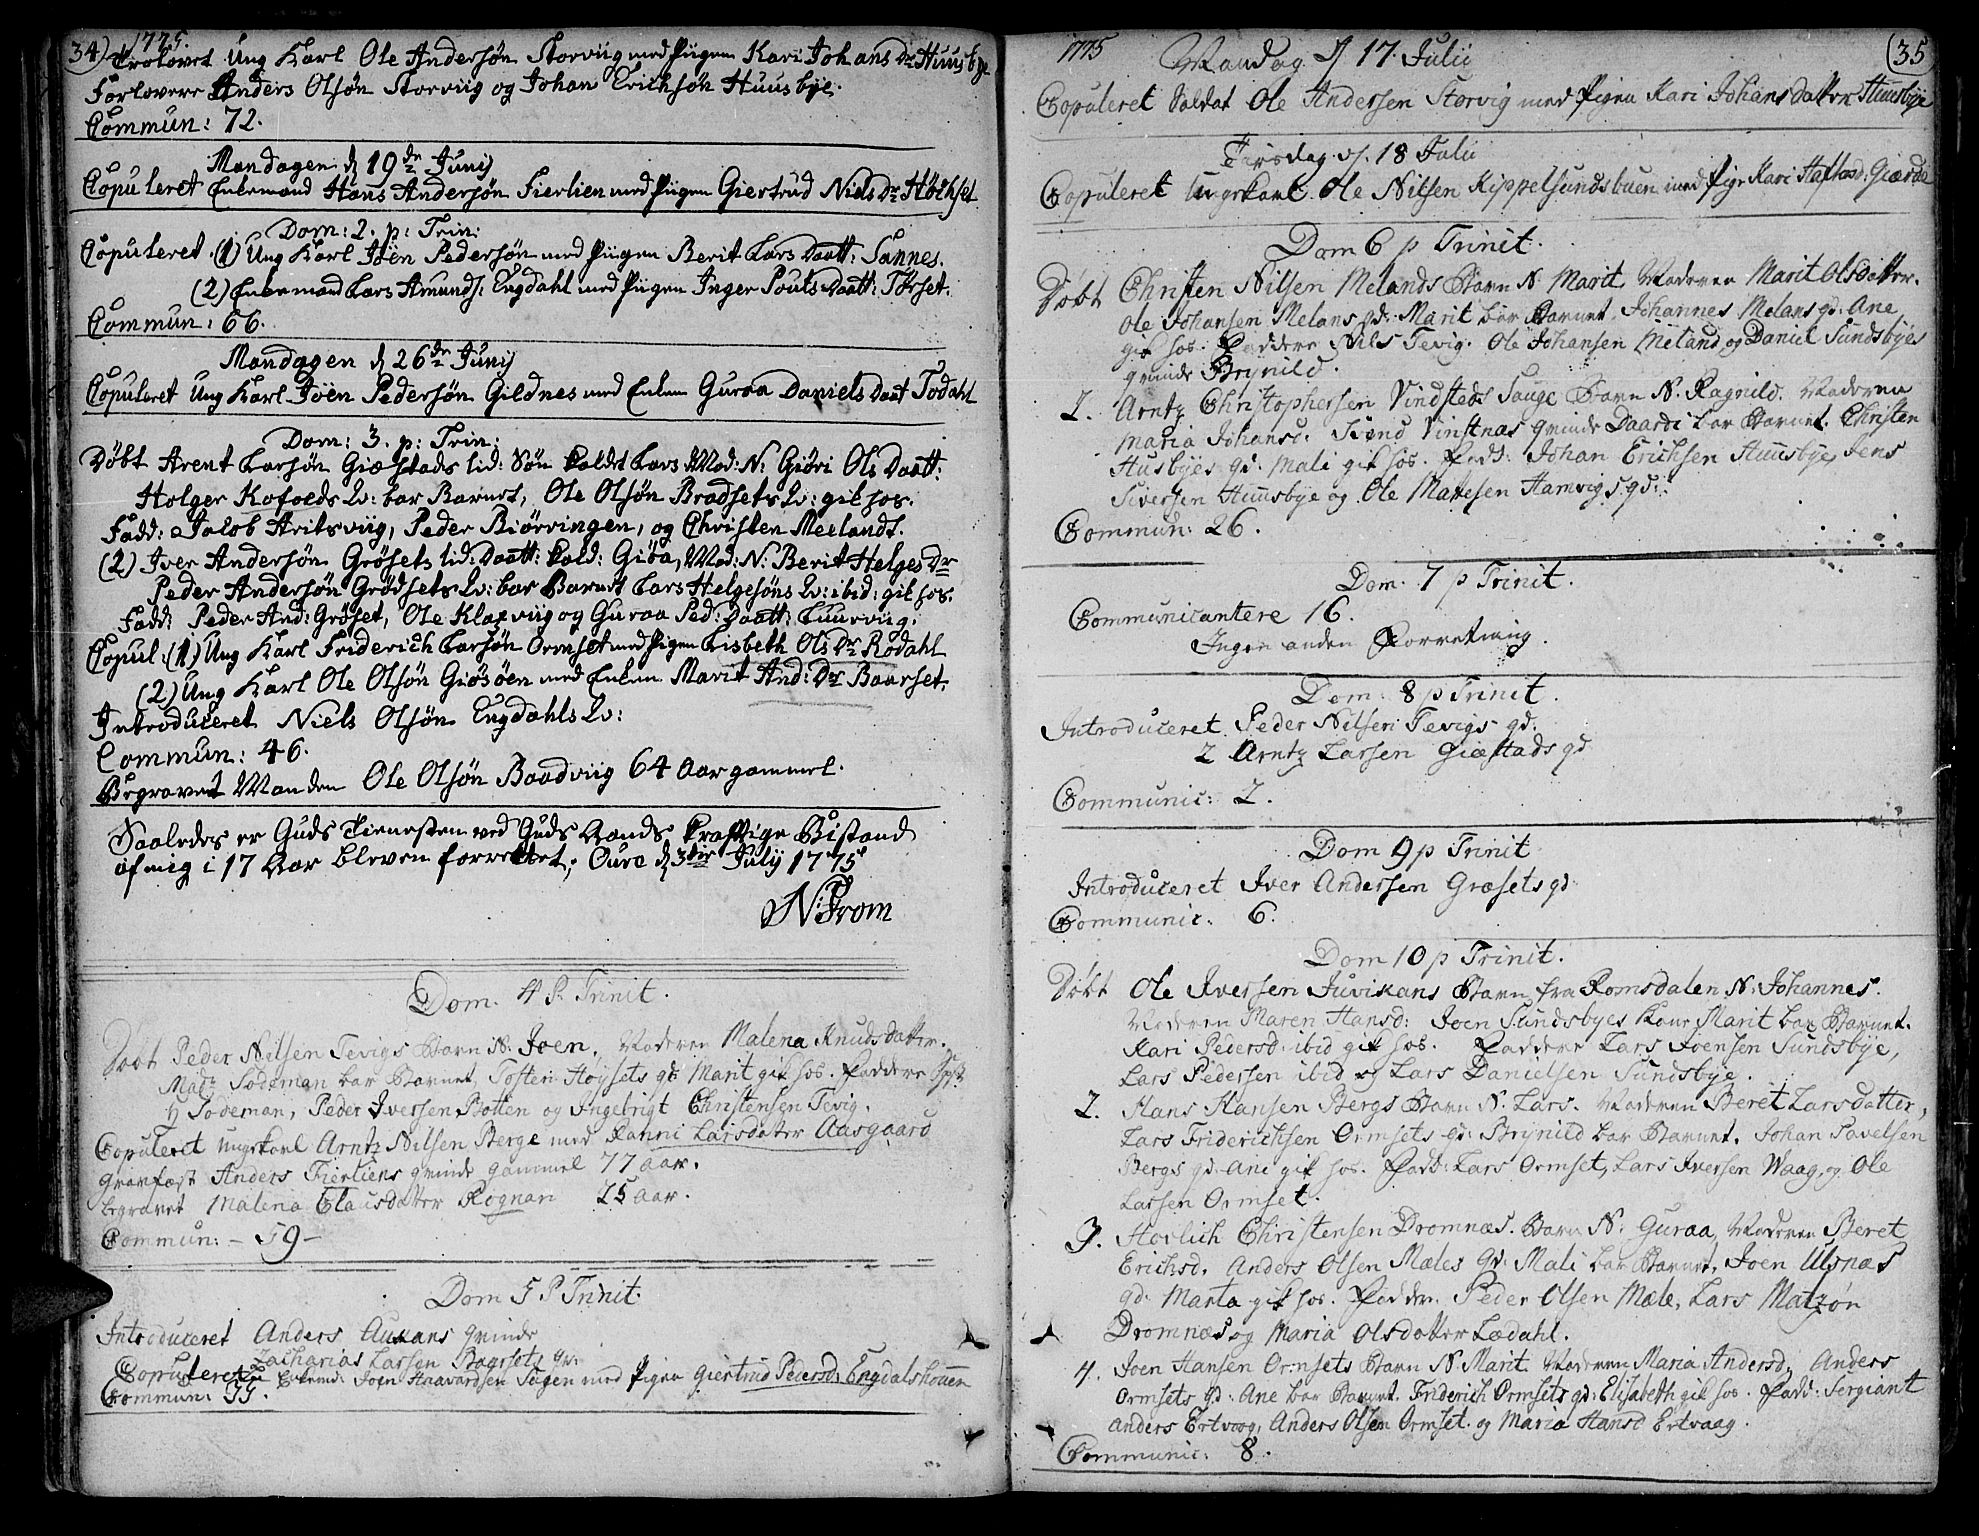 34) 1775.
Trolovet Ung Karl Ole Andersøn Storviig med Piigen Kari Johans Dr Huusbye
Forlovere Anders Olsøn Storviig og Johan Erichsøn Huusbye.
Commun: 72.
Mandagen d 19de Junij
Copuleret Enkemand Hans Andersøn Fierlien med Piigen Giertrud Niels Dr Høchset
Dom: 2. p: Trin:
Copuleret (1) Ung Karl Joen Pedersøn med Piigen Berit Lars Daatt: Sannes.
(2) Enkemand Lars Amunds: Engdahl med Piigen Inger Pouls Daatt: Tørset.
Commun: 66.
Mandagen d 26de Junij
Copuleret Ung Karl Joen Pedersøn Gildnes med Enken Guraa Daniels Daat Todahl
Dom: 3. p: Trin:
Døbt Arent Larsøn Giæstads lid: Søn kaldet Lars Mod: N: Giøri Ols Daatt:
Holger Kofoeds Qv: bar Barnet, Ole Olsøn Bradsets Qv: gik hos.
Fadd: Jacob Aritsviig, Peder Biørvingen, og Christen Meelands.
(2) Iver Andersøn Grøsets lid: Daatt: kald: Giøa, Mod: N: Berit Helges Dr
Peder Andersøn Grødsets Qv: bar Barnet Lars Helgesøns Qv: ibid: gik hos.
Fadd: Peder And: Grøset, Ole Klaxviig og Guraa Ped: Daatt: Cuurviig.
Copul: (1) Ung Karl Friderich Larsøn Ormset med Piigen Lisbeth Ols Dr Rodahl
(2) Ung Karl Ole Olsøn Giøsøen med Enken Marit And: Dr Baarset.
Introduceret Niels Olsøn Engdahls Qv:
Commun: 46.
Begravet Manden Ole Olsøn Baadviig 64 Aar gammel.
Saaledes er Guds Tienesten ved Guds Aands kraftige Bistand
af mig i 17 Aar bleven forrettet, Oure d 3die Julij 1775
N: From
Dom. 4 P. Trinit.
Døbt Peder Nilsen Tevigs Barn N: Joen, Moderen Malena Knuds datter.
Madz Sodeman bar Barnet, Tosten Hoysets qd: Marit gik hos. Faddere
Sodeman, Peder Iversen Botten og Ingebrigt Christensen Tevig.
Copuleret Ungkarl Arntz Nilsen Berge med Fanni Larsdatter Aasgaard
Gravfæst Anders Fierliens qvinde gammel 77 aar.
begravet Malena Clausdatter Rognan 25 aar.
Commun: - 59 -
Dom 5 P Trinit.
Introduceret Anders Aukans qvinde
Zacharias Larsen Baarsets qv.
Copuleret Enkemd: Joen Haavardsen Saugen med Pigen Giertrud Pedersd: Engdalshouen
Commun: 35.
1775 Mandag d 17. Julii (35
Copuleret Soldat Ole Andersen Storvig med Pigen Kari Johansdatter Huusbye
Tirsdag d. 18 Julii
Copuleret Ungekarl Ole Nilsen Kippelsundsbuen med Pige Kari Haftord: Giærde
Dom 6 p Trinit.
Døbt Christen Nilsen Melands Barn N. Marit, Moderen Marit Olsdatter.
Ole Johansen Melans qd: Marit bar Barnet, Johannes Melans qd: Ane
gik hos. Faddere Nils Tevig. Ole Johansen Meland og Daniel Sundsbyes
qvinde Brynild.
2. Arntz Christophersen Vindsteds Sauge Barn N. Ragnild. Moderen
Maria Johansd. Svend Vinstnas qvinde Daardi bar Barnet. Christen
Husbyes qd: Mali gik hos. Fadd: Johan Erichsen Huusbye, Jens
Siversen Huusbye og Ole Matesen Hamvigs qd:
Commun: 26.
Dom. 7 p Trinit.
Communicantere 16.
Ingen anden Forretning.
Dom: 8 p Trinit.
Introduceret Peder Nilsen Tevigs qd:
2 Arntz Larsen Giæstads qd
Communic: 2.
Dom 9 p Trinit
Introduceret Iver Andersen Græsets qd:
Communic: 6.
Dom 10 p Trinit.
Døbt Ole Iversen Juvikans Barn fra Romsdalen N: Johannes.
Moderen Maren Hansd: Joen Sundsbyes Kone Marit bar Barnet.
Kari Pedersd ibid gik hos. Faddere Lars Joensen Sundsbye,
Lars Pedersen ibid og Lars Danielsen Sundsbye.
2. Hans Hansen Bergs Barn N. Lars. Moderen Beret Larsdatter,
Lars Friderichsen Ormsets qd: Brynild bar Barnet. Johan Pavelsen
Bergs qd: Ane gik hos. Fadd: Lars Ormset, Lars Iversen Waag, og Ole
Larsen Ormset.
3. Hovlich Christensen Dromnæs. Barn N: Guraa, Moderen Beret
Ericksd. Anders Olsen Mæles qd: Mali bar Barnet. Joen Ulsnæs
qd: Marta gik hos. Fadder. Peder Olsen Mæle, Lars Matzøn
Dromnæs og Maria Olsdatter Lædahl.
4. Joen Hansen Ormsets Barn N. Marit. Moderen Maria Andersd, Anders
Ormsets qd: Ane bar Barnet. Friderich Ormsets qd: Elisabeth gik hos. Fadd: Sergiant
Anders Ertvog, Anders Olsen Ormset og Maria Hansd Ertvaag.
Communic: 8.